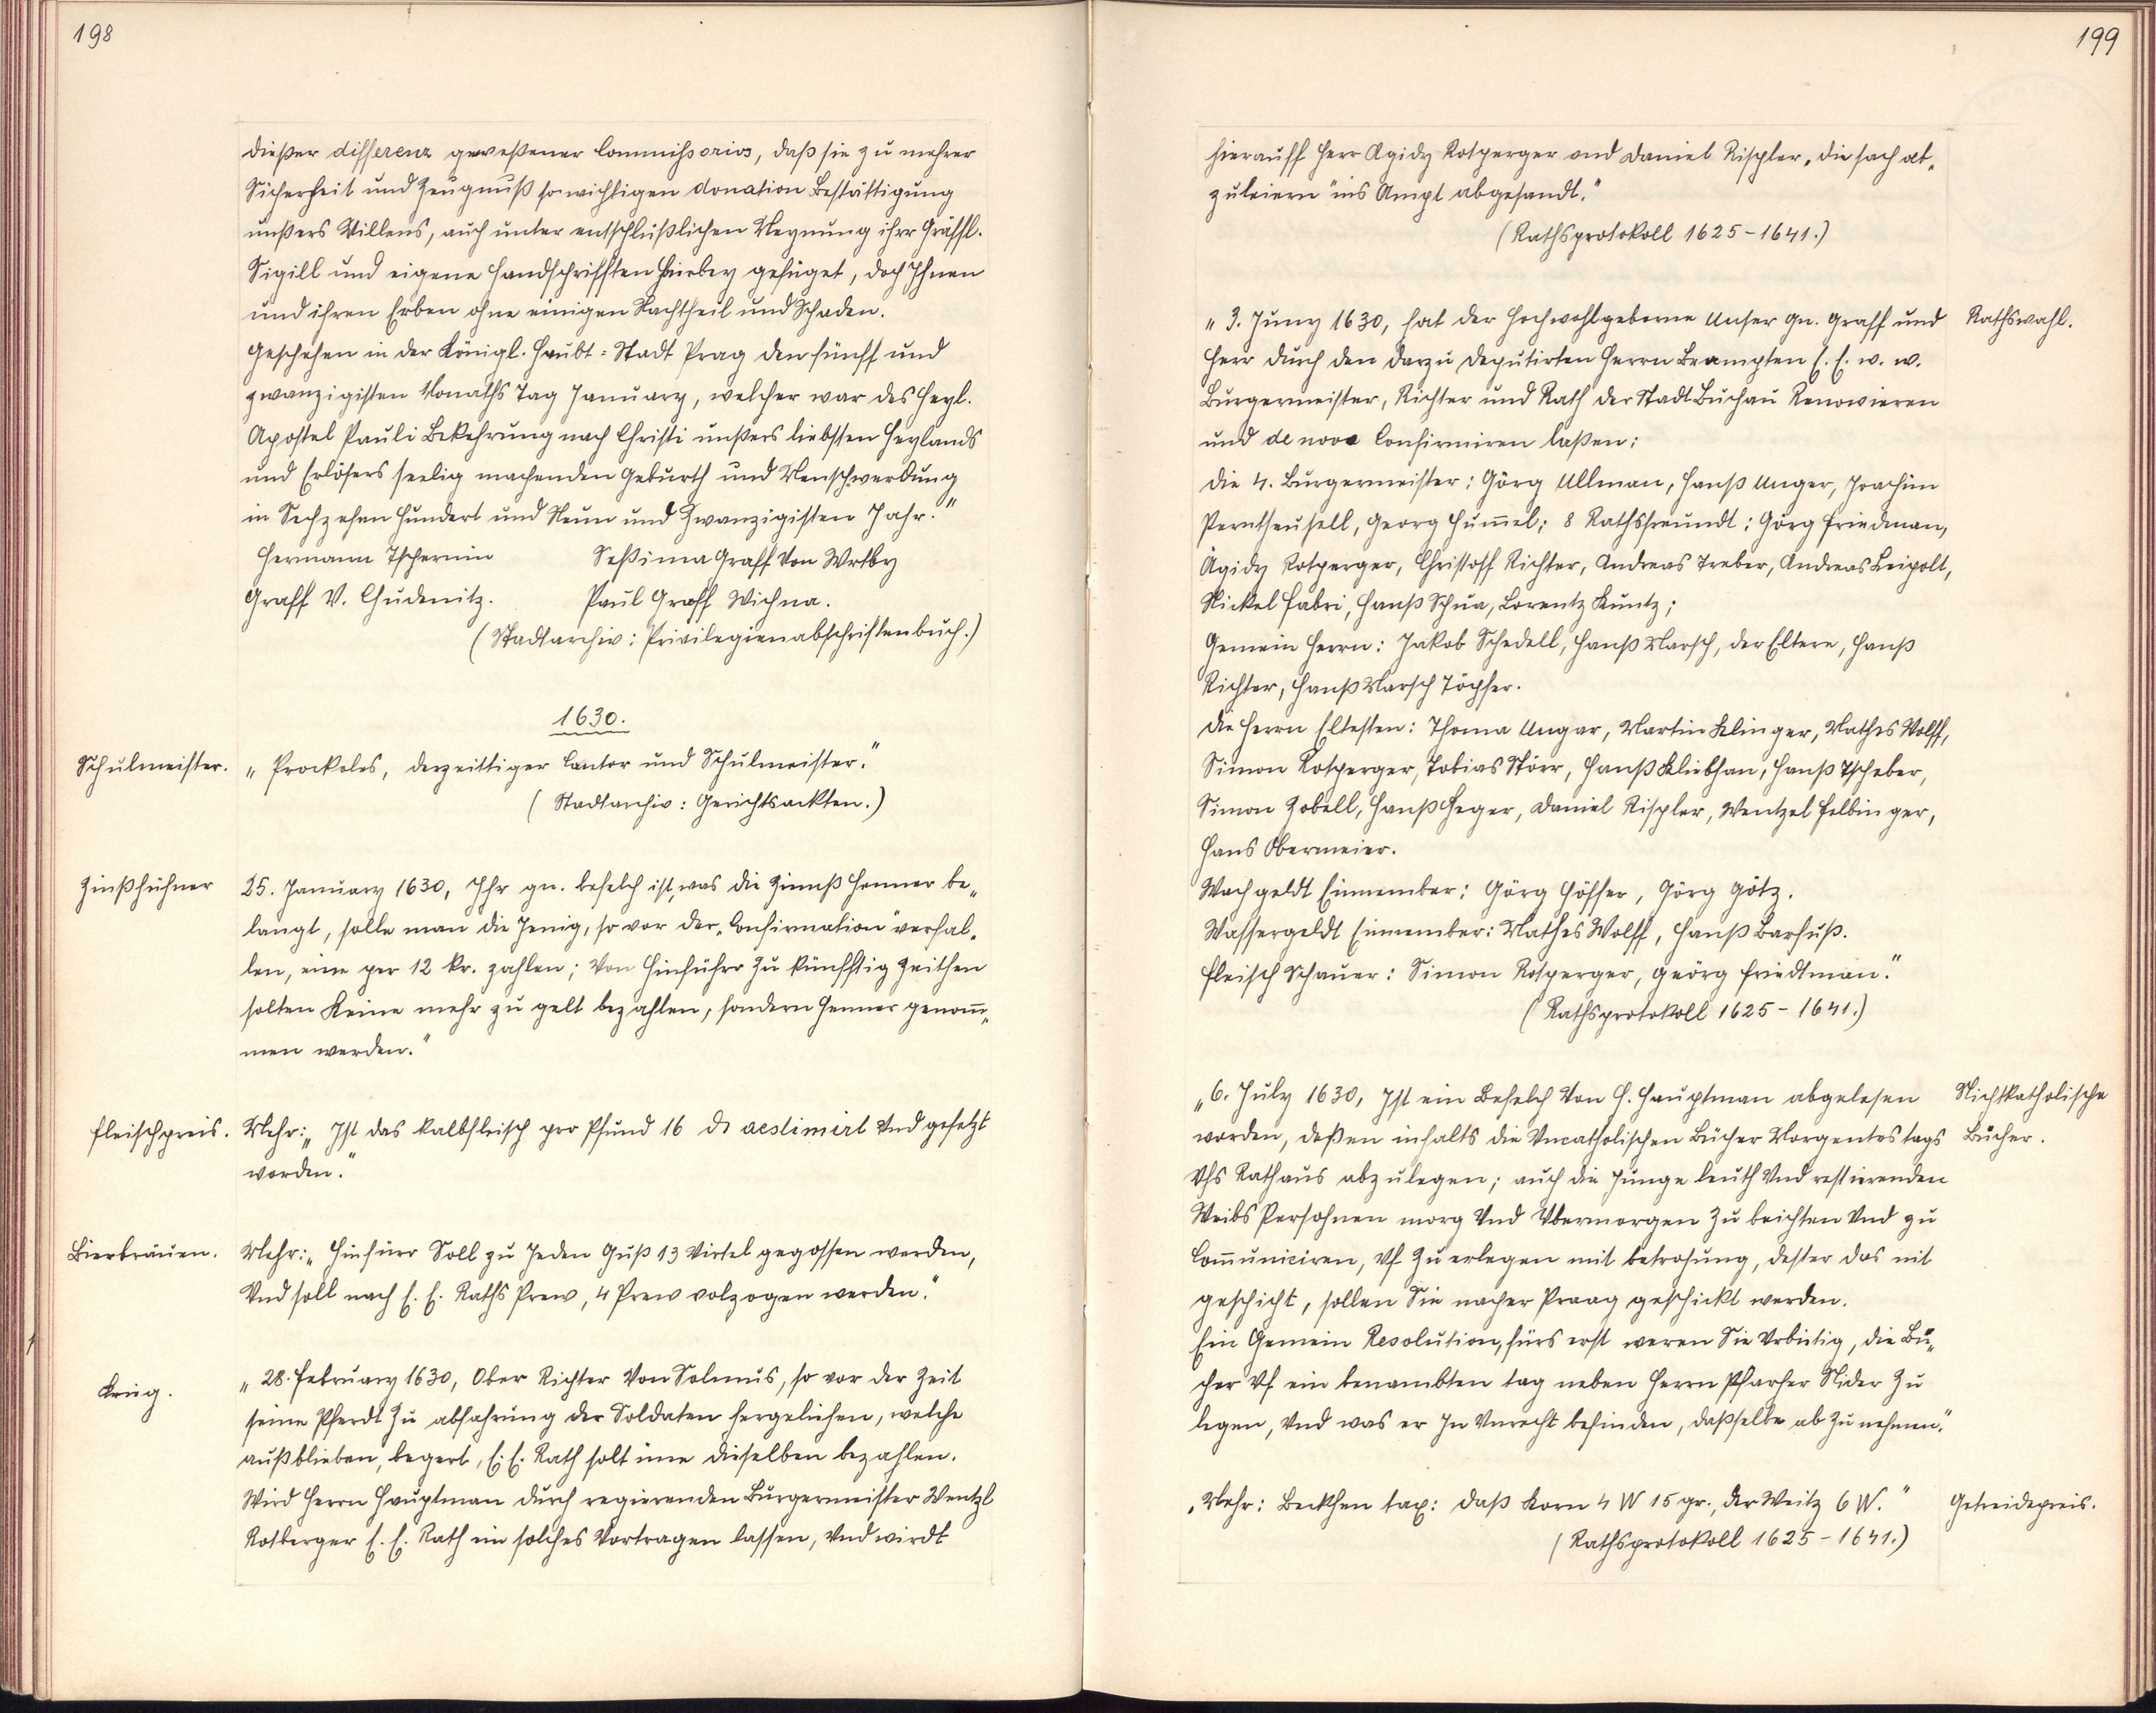 198
dießer differenz geweßener Commissorios, daß sie zu mehrer
Sicherheit und Zeugnuß so wichtigen donation Bestättigung
unßers Willens, auch unter entschlußlichen Meynung ihrer Gräffl.
Sigill und eigene Handschrifften Hierbey gefüget, doch Ihnen
und ihren Erben ohne einigen Nachtheil und Schaden.
Geschehen in der Königl. Haubt-Stadt Prag den fünff und
zwanzigisten Monaths Tag January, welcher war des Heyl.
Apostel Pauli Bekehrung nach Christi unßers liebsten Heylands
und Erlösers seelig machenden Geburth und Menschwerdung
in Sechzehen Hundert und Neun und Zwanzigisten Jahr."
Hermann Tschernin Seßima Graff Von Wrtby
Graff V. Chudenitz. Paul Graff Wichna.
(Stadtarchiv: Privilegienabschriftenbuch.)
1630.
Schulmeister. „Prockoles, derzeittiger Cantor und Schulmeister."
(Stadtarchiv: Gerichtsackten.)
Zinßhühner 25. January 1630, Ihr gn. befelch ist, was die Zinnß Henner be„
langt, solle man die Jenig, so vor der „Confirmation" verfal„
len, eine per 12 kr. zahlen; Von Hinführo Zu künfftig Zeithen
solten Keine mehr zu gelt bezahlen, sondern Henner genom̄„
men werden."
Fleischpreis. Mehr: „Ist das kalbfleisch pro Pfund 16 d. aestimirt Vnd gesetzt
worden."
Bierbräuen. Mehr: „Hinfüro Soll zu Jeden Guß 13 Virtel gegossen werden,
Vnd soll nach E. E. Raths Prew, 4 Prew volzogen werden."
Krieg. „28. February 1630, Ober Richter Von Solmus, so vor der Zeit
seine Pferdt Zu abfahrung der Soldaten hergeliehen, welche
außblieben, begert, E. E. Rath solt ime dieselben bezahlen.
Wird Herrn Hauptman durch regierenden Burgermeister Wentzl
Rotberger E. E. Rath ein solches Vortragen lassen, Vnd wirdt
199
hierauff Herr Agidy Rotperger vnd Daniel Rischler, „die sach ab„
zuleiern" ins Ampt abgesandt."
(Rathsprotokoll 1625-1641.)
„3. Juny 1630, hat der Hochwohlgeborne Unser Gn. Graff und Rathswahl.
Herr durch den darzu deputirten Herrn Beampten E. E. w. w.
Burgermeister, Richter und Rath der Stadt Buchau Renovieren
und de nova Confirmiren laßen:
Die 4. Burgermeister: Görg Ullman, Hanß Unger, Joachim
Perntheusell, Georg Hum̄el; 8 Rathsfreundt: Görg Friedman,
Ägidy Rotperger, Christoff Richter, Andreas Treber, Andreas Leipolt,
Nickel Fabri, Hanß Schua, Lorentz Kuntz;
Gemein Herrn: Jakob Schedell, Hanß Marsch, der Eltere, Hanß
Richter, Hanß Marsch Töpfer.
Die Herrn Eltesten: Thoma Ungar, Martin Klinger, Mathes Wolff,
Simon Rotperger, Tobias Störr, Hanß Kliebhan, Hanß Tscheber,
Simon Zobell, Hanß Heger, Daniel Rischler, Wentzel Felbinger,
Hans Obermeier.
Wach geldt Einnember: Görg Höffer, Görg Götz.
Wassergeldt Einnember: Mathes Wolff, Hanß Barfuß.
Fleisch Schauer: Simon Rosperger, Geörg Friedtman."
(Rathsprotokoll 1625-1641.)
„6. July 1630, Ist ein Befelch Von H. Hauptman abgelesen Nichtkatholische
worden, deßen inhalts die Vncatholischen Bücher Morgentes tags Bücher.
Vfs Rathaus abzulegen; auch die Junge leuth Vnd restierenden
Weibs Persohnen morg Vnd Vbermorgen Zu beichten Vnd zu
Com̄uniciren, Vf Zu erlegen mit betrohung, dester das nit
geschicht, sollen Sie nacher Praag geschickt werden.
Ein Gemein Resolution, fürs erst weren Sie Vrbietig, die Bü„
cher Vf ein benambten tag neben Herrn Pfarher Nider Zu
legen, Vnd was er In Vnrecht befinden, daßselbe ab Zu nehmen."
„Mehr: Beckhen tax: daß Korn 4 W 15 gr., der Weitz 6 W." Getreidepreis.
(Rathsprotokoll 1625-1641.)